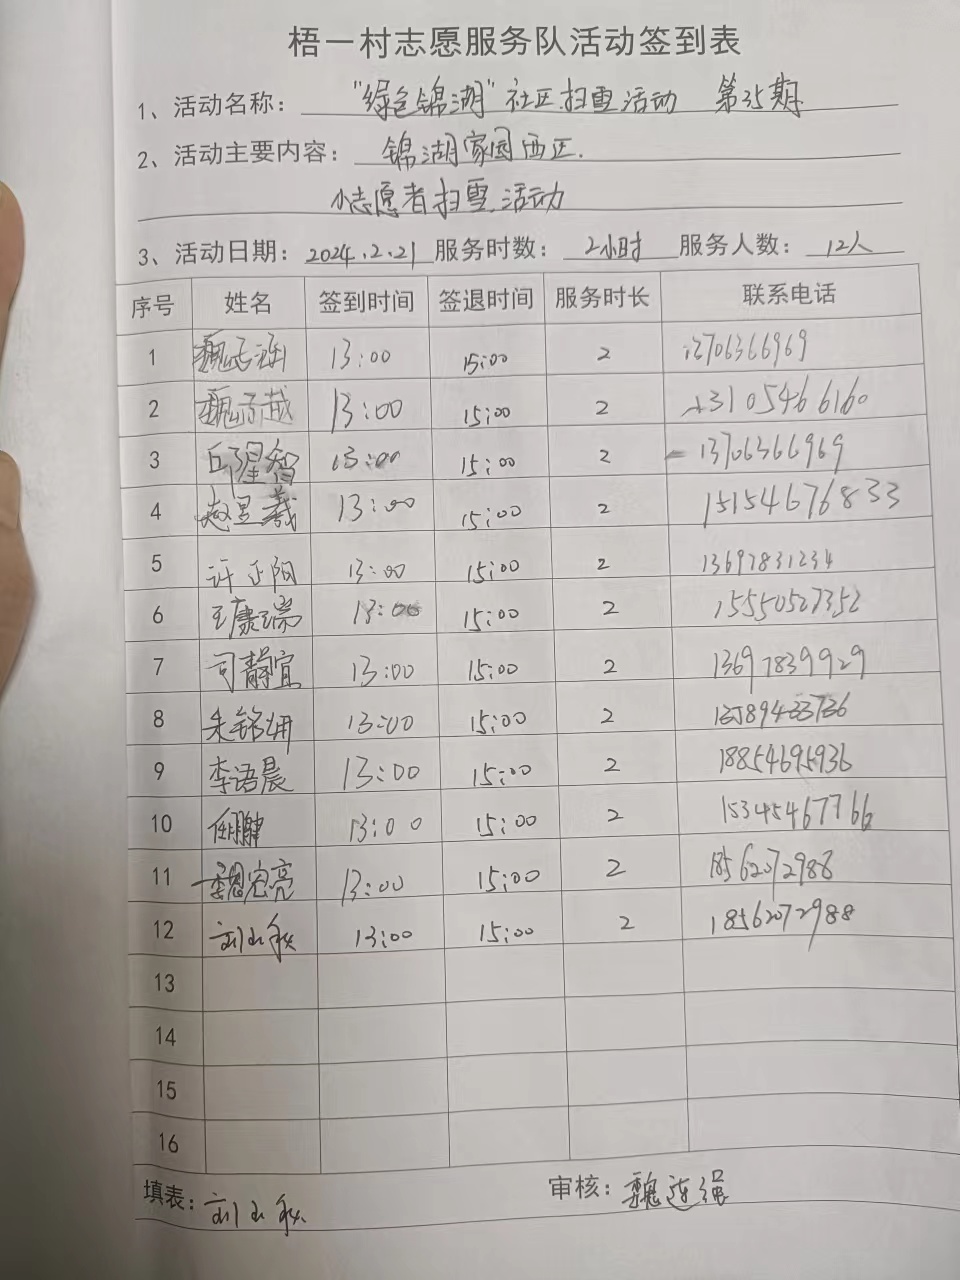 梧一村志愿服务队活动签到表
1、活动名称： "绿色锦湖"社区扫雪活动 第35期
2、活动主要内容： 锦湖家园西区.
小志愿者扫雪活动
3、活动日期： 2024.2.21 服务时数： 2小时 服务人数： 12人
序号 姓名 签到时间 签退时间 服务时长 联系电话
1 魏 13:00 15:00 2 13706366969
2 魏子越 13:00 15:00 2 13105466160
3 智 13:00 15:00 2 13706366969
4 赵昱羲 13:00 15:00 2 15154676833
5 许正阳 13:00 15:00 2 13697831234
6 王康瑞 13:00 15:00 2 15550527352
7 司静宜 13:00 15:00 2 13697839929
8 朱铭 13:00 15:00 2
9 李语晨 13:00 15:00 2 18854695936
10 任鹏肆 13:00 15:00 2 15345467766
11 魏宏亮 13:00 15:00 2 18562072988
12 刘小秋 13:00 15:00 2 18562072988
13
14
15
16
填表： 刘小秋 审核： 魏连强